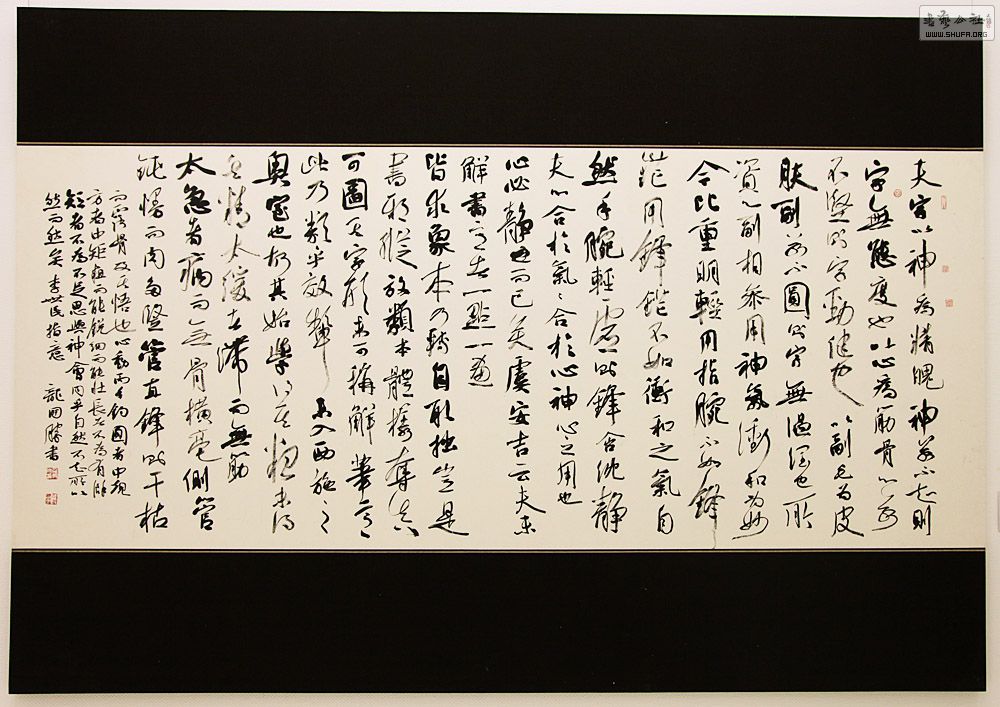 書藝公社
WWW.SHUFA.ORG
夫字以神為精魄神若不和則
字無態度也以心為筋骨心若
不堅則字勁健也以副毛為皮
膚副若不圓則字無溫潤也所
資心副相參用神氣衝和為妙
今比重明輕用指腕不如鋒
芒用鋒芒不如衝和之氣自
然手腕輕虛則鋒含沈靜
夫心合於氣氣合於心神心之用也
心必靜而已矣虞安吉云夫未
解書意者一點一畫
皆求象本乃轉自取拙豈是
書邪縱放類本體樣奪真
可圖其字形未可稱解筆意
此乃類乎效顰未入西施之
奧室也故其始學得其粗未得
其精太緩者滯而無筋
太急者病而無骨橫毫側管
鈍慢而肉多豎管直鋒則干枯
而露骨及其悟也心動而手鈞圓者中規
方者中矩粗而能銳細而能壯長者不為有餘
短者不為不足思與神會同乎自然不知所以
然而然矣李世民指意 龍開勝書